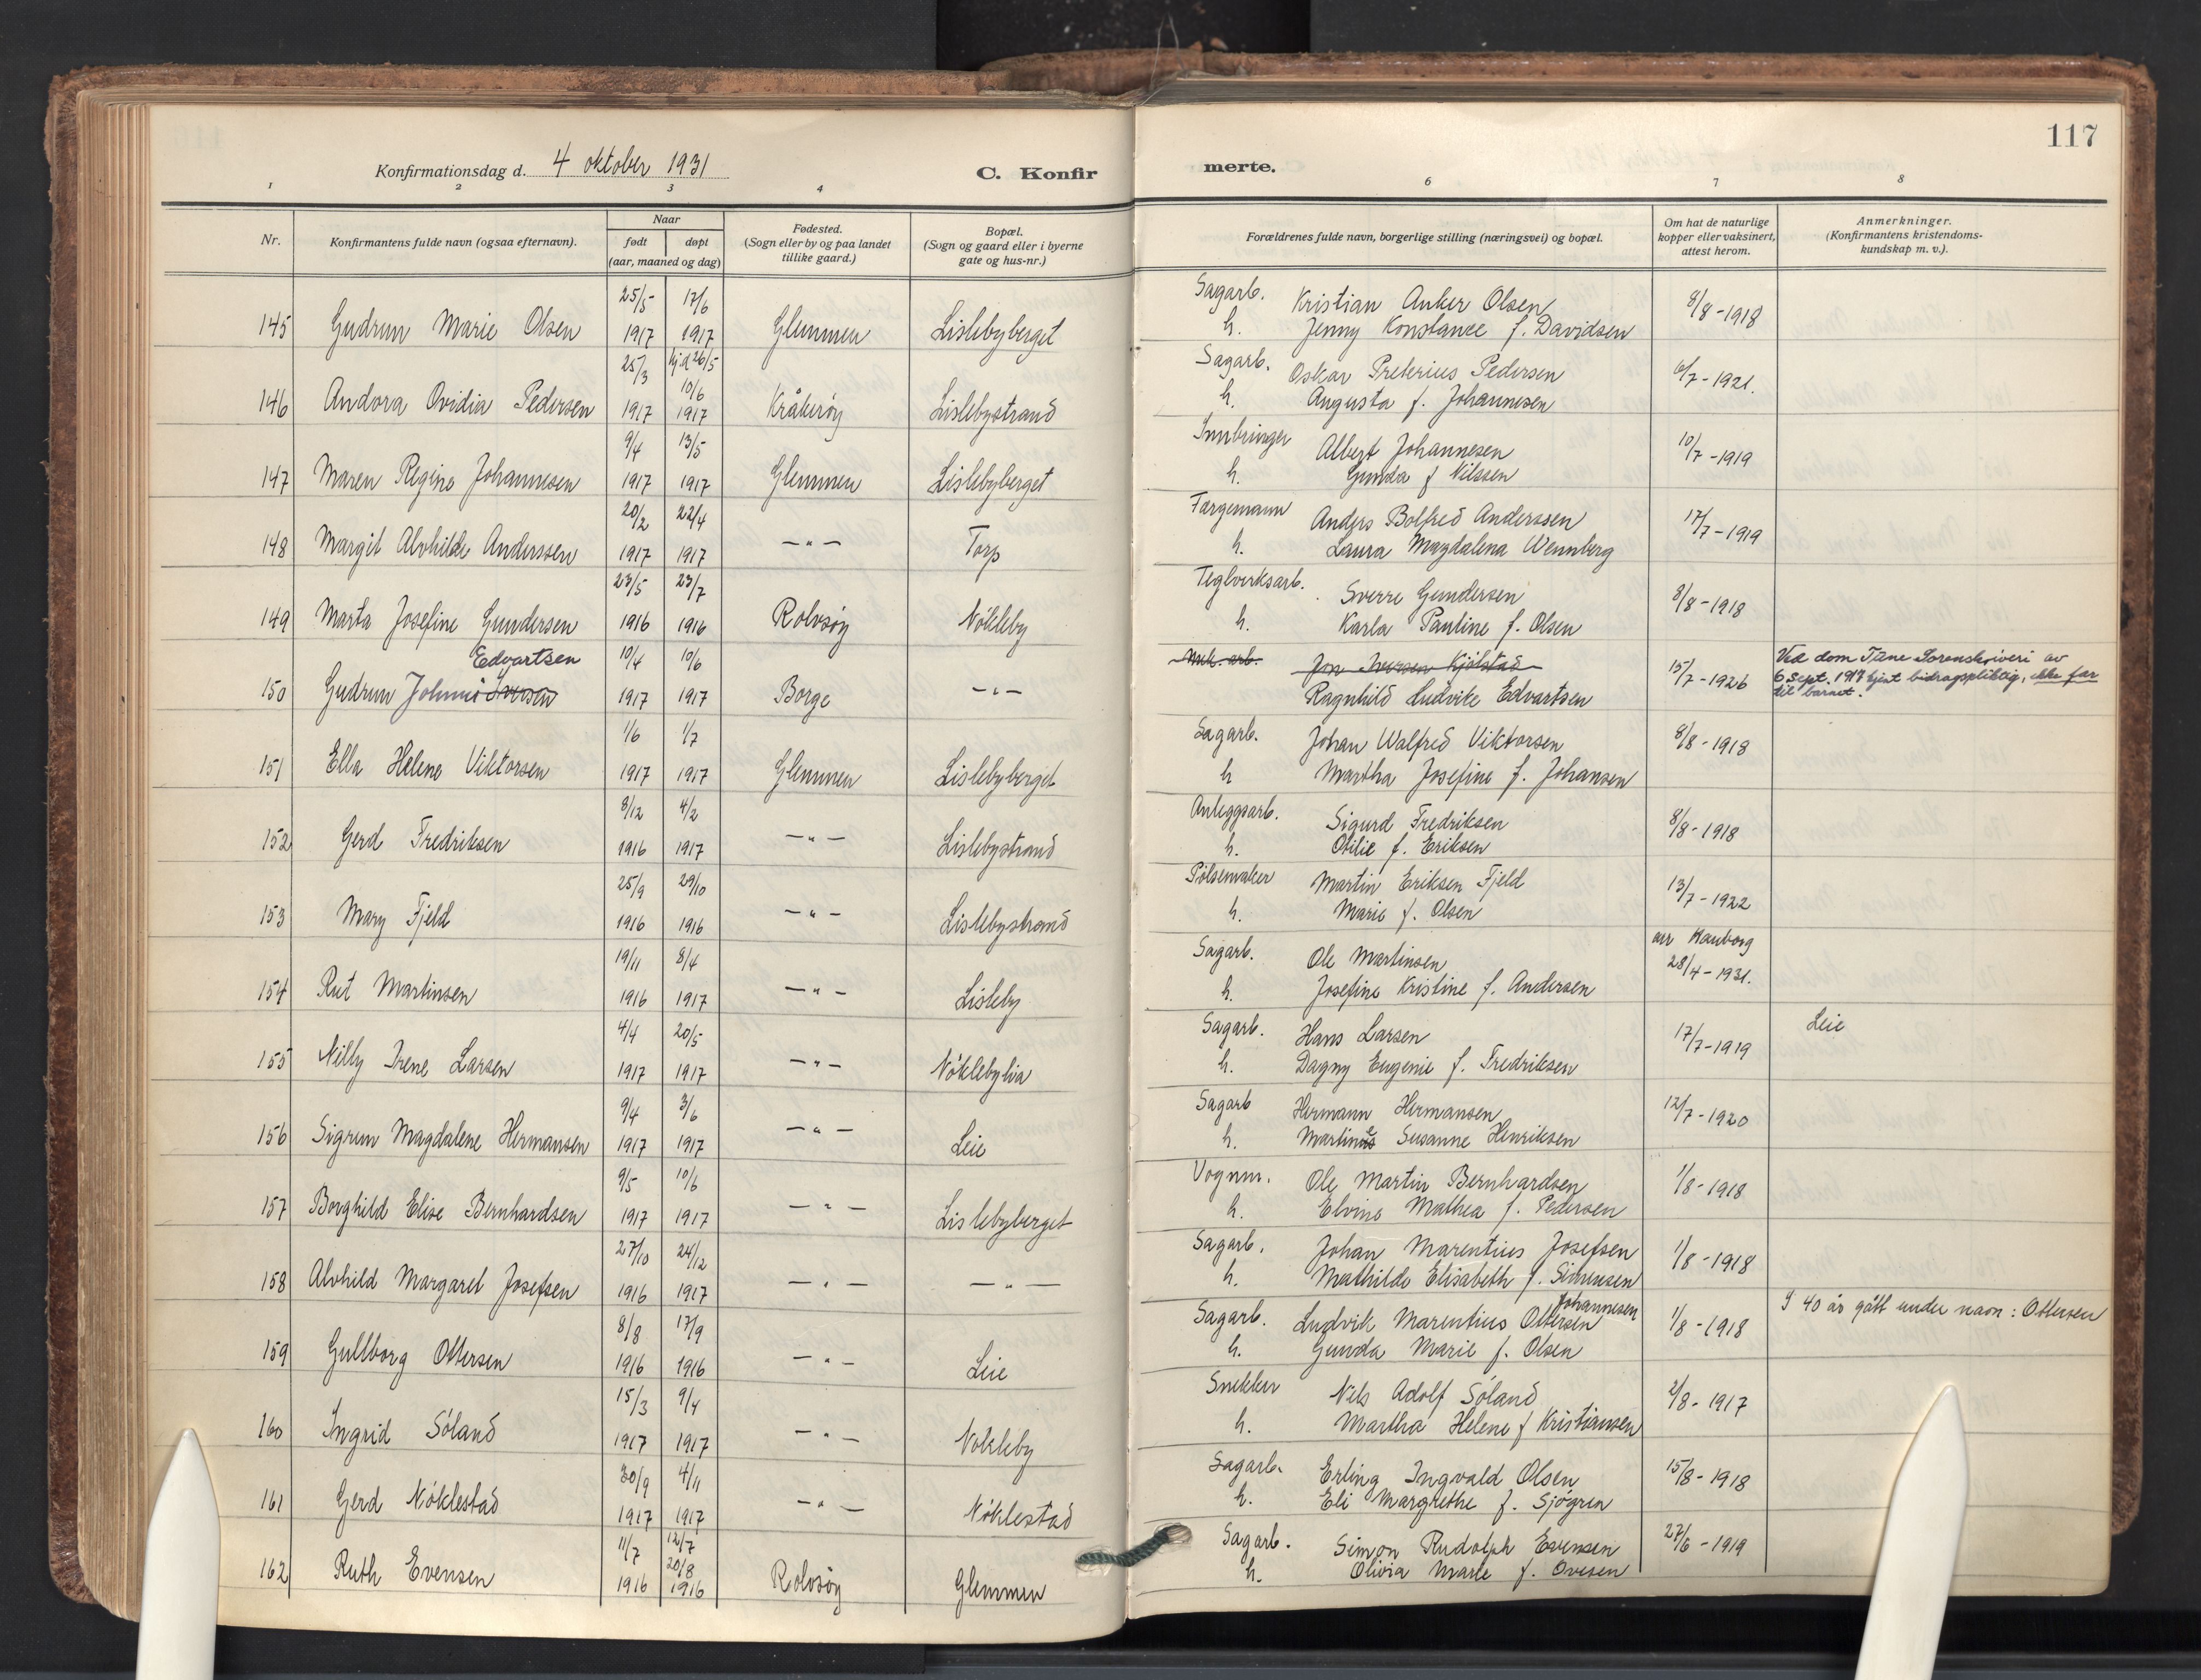 117
Konfirmationsdag d. 4 oktober 1931 C. Konfirmerte.
1 2 3 4 6 7 8
Nr. Konfirmantens fulde navn (ogsaa efternavn). Naar født døpt (aar, maaned og dag) Fødested. (Sogn eller by og paa landet tillike gaard.) Bopæl. (Sogn og gaard eller i byerne gate og hus-nr.) Forældrenes fulde navn, borgerlige stilling (næringsvei) og bopæl. Om hat de naturlige kopper eller vaksinert, attest herom. Anmerkninger. (Konfirmantens kristendoms-kundskap m. v.).
145 Gudrun Marie Olsen 25/5 1917 17/6 1917 Glemmen Lislebyberget Sagarb. Kristian Anker Olsen 8/8-1918
h. Jenny Konstanse f. Davidsen
146 Andora Ovidia Pedersen 25/3 1917 hj.d 26/5 10/6 1917 Kråkerøy Lislebystrand Sagarb. Oskar Preterius Pedersen 6/7-1921.
h. Augusta f. Johannesen
147 Maren Regine Johannesen 9/4 1917 13/5 1917 Glemmen Lislebyberget Innbringer Albert Johannesen 10/7-1919
h. Gunda f Nilssen
148 Margit Alvhilde Anderssen 20/2 1917 22/4 1917 —"— Torp Fargemann Anders Bolfred Anderssen 17/7-1919
h. Laura Magdalena Wennberg
149 Marta Josefine Gundersen 23/5 1916 23/7 1916 Rolvsøy Nökleby Teglverksarb. Sverre Gundersen 8/8-1918
h. Karla Pauline f. Olsen
150 Gudrun Johnni Iversen Edvartsen 10/4 1917 10/6 1917 Borge —"— Mek. arb. Jon Iversen Kjölstad 15/7-1926 Ved dom Tune Sorenskriveri av 6 Sept. 1917 kjent bidragspliktig, ikke far til barnet.
Ragnhild Ludvike Edvartsen
151 Ella Helene Viktorsen 1/6 1917 1/7 1917 Glemmen Lislebyberget Sagarb. Johan Walfred Viktorsen 8/8-1918
h Martha Josefine f. Johansen
152 Gerd Fredriksen 8/12 1916 4/2 1917 —"— Lislebystrand Anleggsarb. Sigurd Fredriksen 8/8-1918
h. Otilie f. Eriksen
153 Mary Fjeld 25/9 1916 29/10 1916 —"— Lislebystrand Pölsemaker Martin Eriksen Fjeld 13/7-1922
h. Marie f. Olsen
154 Rut Martinsen 19/11 1916 8/4 1917 —"— Lisleby Sagarb. Ole Martinsen 28/4-1931.
h. Josefine Kristine f. Andersen
155 Nilly Irene Larsen 4/4 1917 20/5 1917 —"— Nöklebylia Sagarb. Hans Larsen 17/7-1919 Leie
h. Dagny Eugenie f. Fredriksen
156 Sigrun Magdalene Hermansen 9/4 1917 3/6 1917 —"— Leie Sagarb Hermann Hermansen 12/7-1920
h. Martine Susanne Henriksen
157 Borghild Elise Bernhardsen 9/5 1917 10/6 1917 —"— Lislebyberget Vognm. Ole Martin Bernhardsen 1/8-1918
h. Elvine Mathea f. Pedersen
158 Alvhild Margaret Josefsen 27/10 1916 24/12 1917 —"— —"— Sagarb. Johan Marentius Josefsen 1/8-1918
h. Mathilde Elisabeth f. Simensen
159 Gullborg Ottersen 8/8 1916 17/9 1916 —"— Leie Sagarb. Ludvik Marentius Ottersen Johannesen 1/8-1918 I 40 år gått under navn: Ottersen
h. Gunda Marie f. Olsen
160 Ingrid Söland 15/3 1917 9/4 1917 —"— Nökleby Snekker Nils Adolf Söland 2/8-1917
h. Martha Helene f Kristiansen
161 Gerd Nöklestad 30/9 1917 4/11 1917 —"— Nöklestad Sagarb. Erling Ingvald Olsen 15/8-1918
h. Eli Margrethe f. Sjögren
162 Ruth Evensen 11/7 1916 12/7 20/8 1916 Rolvsøy Glemmen Sagarb. Simon Rudolph Evensen 27/6-1919
h. Olivia Marie f. Ovesen